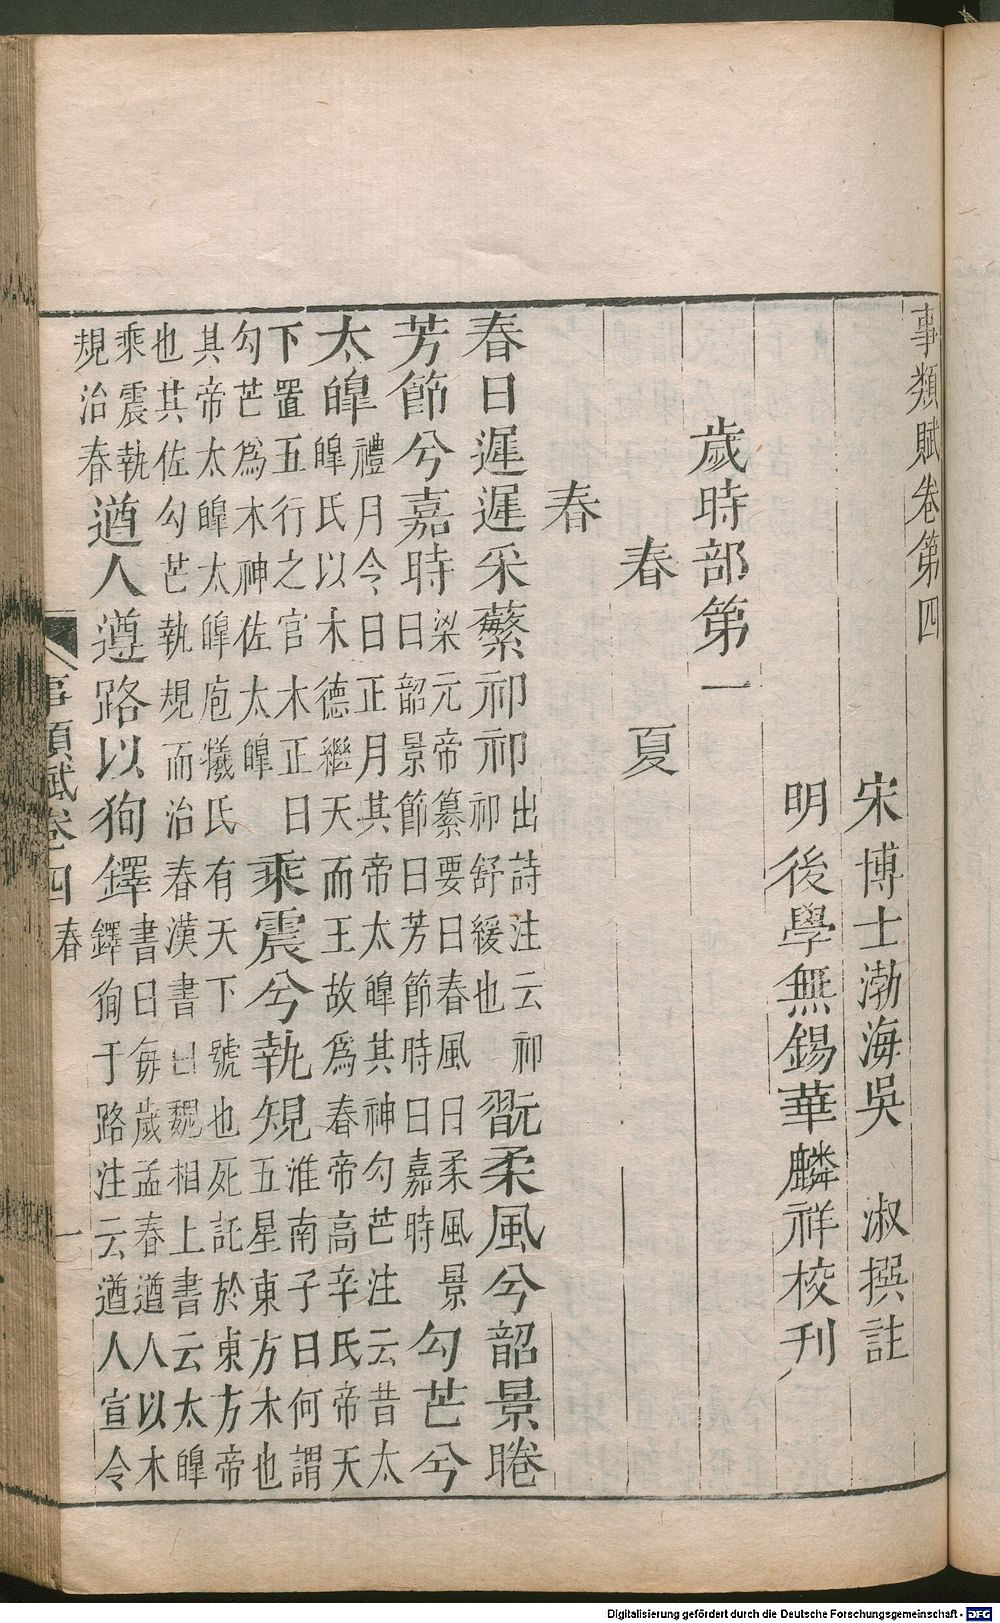 事類賦卷第四
宋博士渤海吳 淑撰註
明後學無錫華麟祥校刊
歲時部第一
春 夏
春
春日遲遲采蘩祁祁出詩注云祁祁舒緩也翫柔風兮韶景睠
芳節兮嘉時梁元帝纂要曰春風曰柔風景曰韶景節曰芳節時曰嘉時勾芒兮
太皥禮月令曰正月其帝太皥其神勾芒注云昔太皥氏以木德繼天而王故爲春帝高辛氏帝天
下置五行之官木正曰勾芒爲木神佐太皥乘震兮執規淮南子曰何謂五星東方木也
其帝太皥太皥庖犧氏有天下號也死託於東方帝也其佐勾芒執規而治春漢書曰魏相上書云太皥
乘震執規治春遒人遵路以狥鐸書曰每歲孟春遒人以木鐸狥于路注云遒人宣令
事類賦卷四 春 一
Digitalisierung gefördert durch die Deutsche Forschungsgemeinschaft - DFG